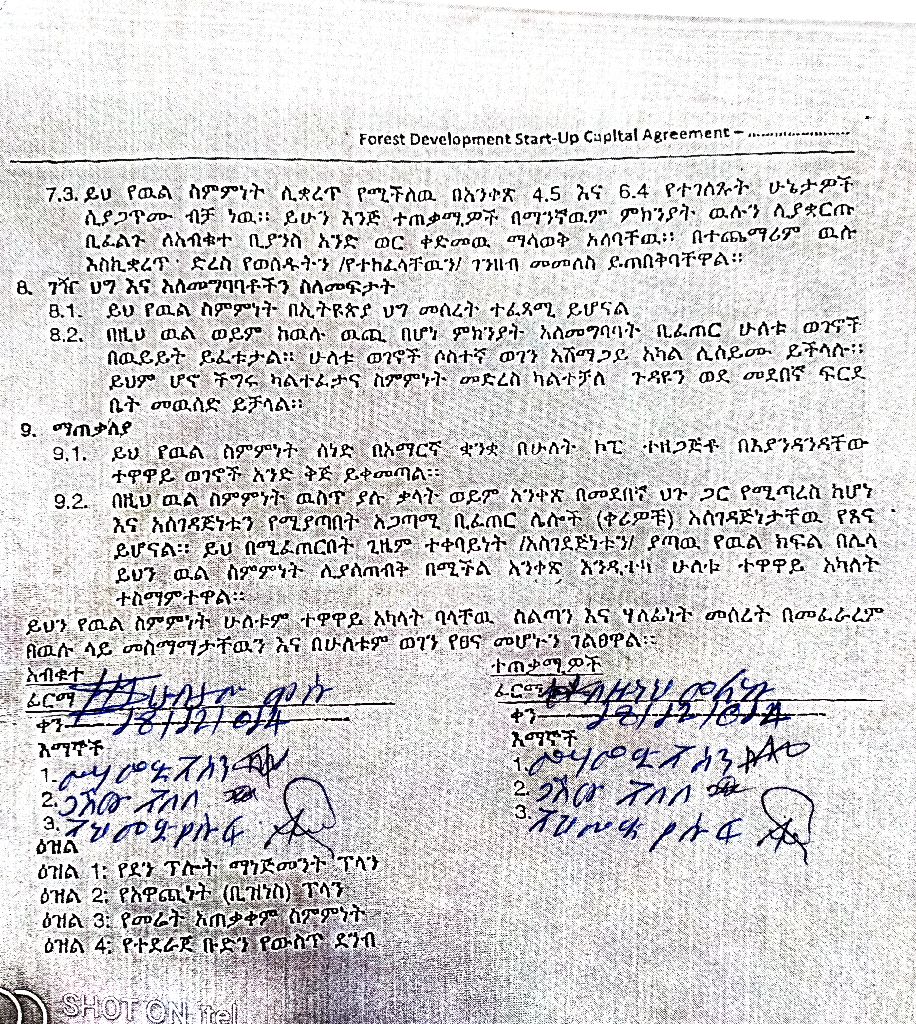 Forest Development Start-Up Capital Agreement – ......................
7.3. ይህ የዉል ስምምነት ሊቋረጥ የሚችለዉ በአንቀጽ 4.5 እና 6.4 የተገለጹት ሁኔታዎች
ሲያጋጥሙ ብቻ ነዉ። ይሁን እንጅ ተጠቃሚዎች በማንኛዉም ምክንያት ዉሉን ሲያቋርጡ
ቢፈልጉ ለአብቁተ ቢያንስ አንድ ወር ቀድመዉ ማሳወቅ አለባቸዉ። በተጨማሪም ዉሉ
እስኪቋረጥ ድረስ የወሰዱትን /የተከፈላቸዉን/ ገንዘብ መመለስ ይጠበቅባቸዋል።
8. ገዥ ህግ እና አለመግባባቶችን ስለመፍታት
8.1. ይህ የዉል ስምምነት በኢትዮጵያ ህግ መሰረት ተፈጻሚ ይሆናል
8.2. በዚህ ዉል ወይም ከዉሉ ዉጪ በሆነ ምክንያት አለመግባባት ቢፈጠር ሁለቱ ወገኖች
በዉይይት ይፈቱታል። ሁለቱ ወገኖች ሶስተኛ ወገን አሸማጋይ አካል ሊሰይሙ ይችላሉ።
ይህም ሆኖ ችግሩ ካልተፈታና ስምምነት መድረስ ካልተቻለ ጉዳዩን ወደ መደበኛ ፍርደ
ቤት መዉሰድ ይቻላል።
9. ማጠቃለያ
9.1. ይህ የዉል ስምምነት ሰነድ በአማርኛ ቋንቋ በሁለት ኮፒ ተዘጋጅቶ በእያንዳንዳቸው
ተዋዋይ ወገኖች አንድ ቅጅ ይቀመጣል።
9.2. በዚህ ዉል ስምምነት ዉስጥ ያሉ ቃላት ወይም አንቀጽ በመደበኛ ህጉ ጋር የሚጣረስ ከሆነ
እና አስገዳጅነቱን የሚያጣበት አጋጣሚ ቢፈጠር ሌሎች (ቀሪዎቹ) አስገዳጅነታቸዉ የጸና
ይሆናል። ይህ በሚፈጠርበት ጊዜም ተቀባይነት /አስገደጅነቱን/ ያጣዉ የዉል ክፍል በሌላ
ይህን ዉል ስምምነት ሊያስጠብቅ በሚችል አንቀጽ እንዲተካ ሁለቱ ተዋዋይ አካለት
ተስማምተዋል።
ይህን የዉል ስምምነት ሁለቱም ተዋዋይ አካላት ባላቸዉ ስልጣን እና ሃላፊነት መሰረት በመፈራረም
በዉሉ ላይ መስማማታቸዉን እና በሁለቱም ወገን የፀና መሆኑን ገልፀዋል።
አብቁተ
ፊርማ
ቀን
እማኞች
1.
2.
3.
ተጠቃሚዎች
ፊርማ
ቀን
እማኞች
1.
2.
3.
ዕዝል
ዕዝል 1: የደን ፕሎት ማነጅመንት ፕላን
ዕዝል 2: የአዋጪነት (ቢዝነስ) ፕላን
ዕዝል 3: የመሬት አጠቃቀም ስምምነት
ዕዝል 4: የተደራጀ ቡድን የውስጥ ደንብ
SHOT ON itel